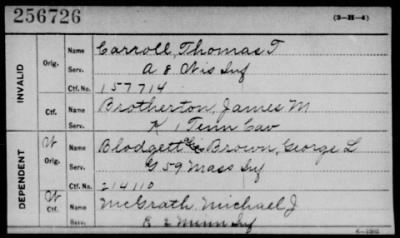 256726
(3-H-4)
INVALID
Orig.
Name Carroll, Thomas T
Serv. A 8 Wis Inf
Ctf. No. 157714
Ctf.
Name Brotherton, James M
Serv. K 1 Tenn Cav
DEPENDENT
W
Orig.
Name Blodgett Brown, George L
Serv. G 59 Mass Inf
Ctf. No. 214110
W
Ctf.
Name McGrath, Michael J
Serv. 2 Minn Inf